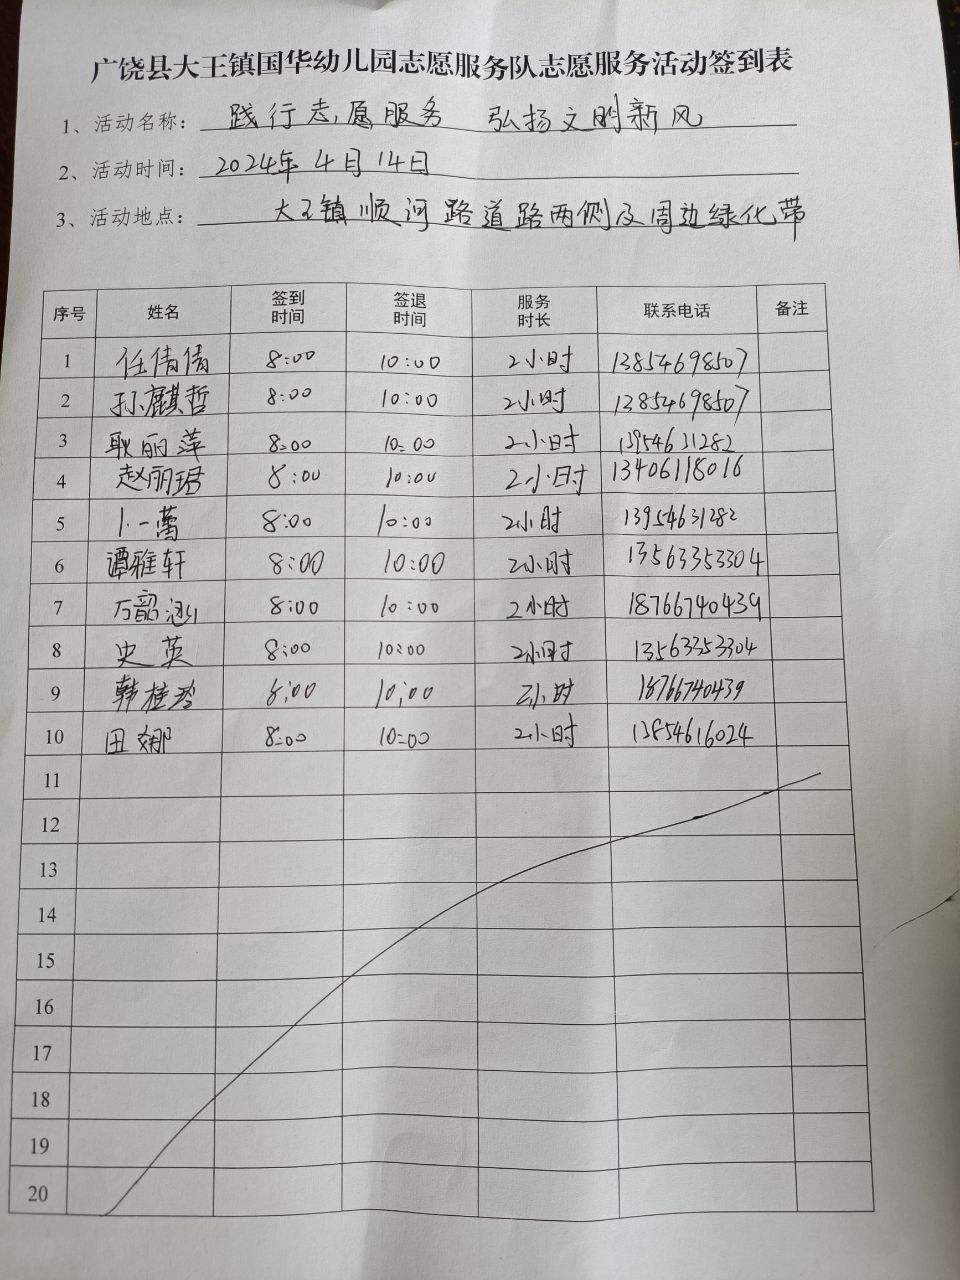 广饶县大王镇国华幼儿园志愿服务队志愿服务活动签到表
1、活动名称：践行志愿服务 弘扬文明新风
2、活动时间：2024年4月14日
3、活动地点：大王镇顺河路道路两侧及周边绿化带
序号 姓名 签到时间 签退时间 服务时长 联系电话 备注
1 任倩倩 8:00 10:00 2小时 13854698507
2 孙麒哲 8:00 10:00 2小时 13854698507
3 耿丽萍 8:00 10:00 2小时 13954631282
4 赵丽珺 8:00 10:00 2小时 13406118016
5 卜一蕾 8:00 10:00 2小时 13954631282
6 谭雅轩 8:00 10:00 2小时 13563353304
7 万韶涵 8:00 10:00 2小时 18766740439
8 史英 8:00 10:00 2小时 13563353304
9 韩桂玲 8:00 10:00 2小时 18766740439
10 田娜 8:00 10:00 2小时 13854616024
11
12
13
14
15
16
17
18
19
20